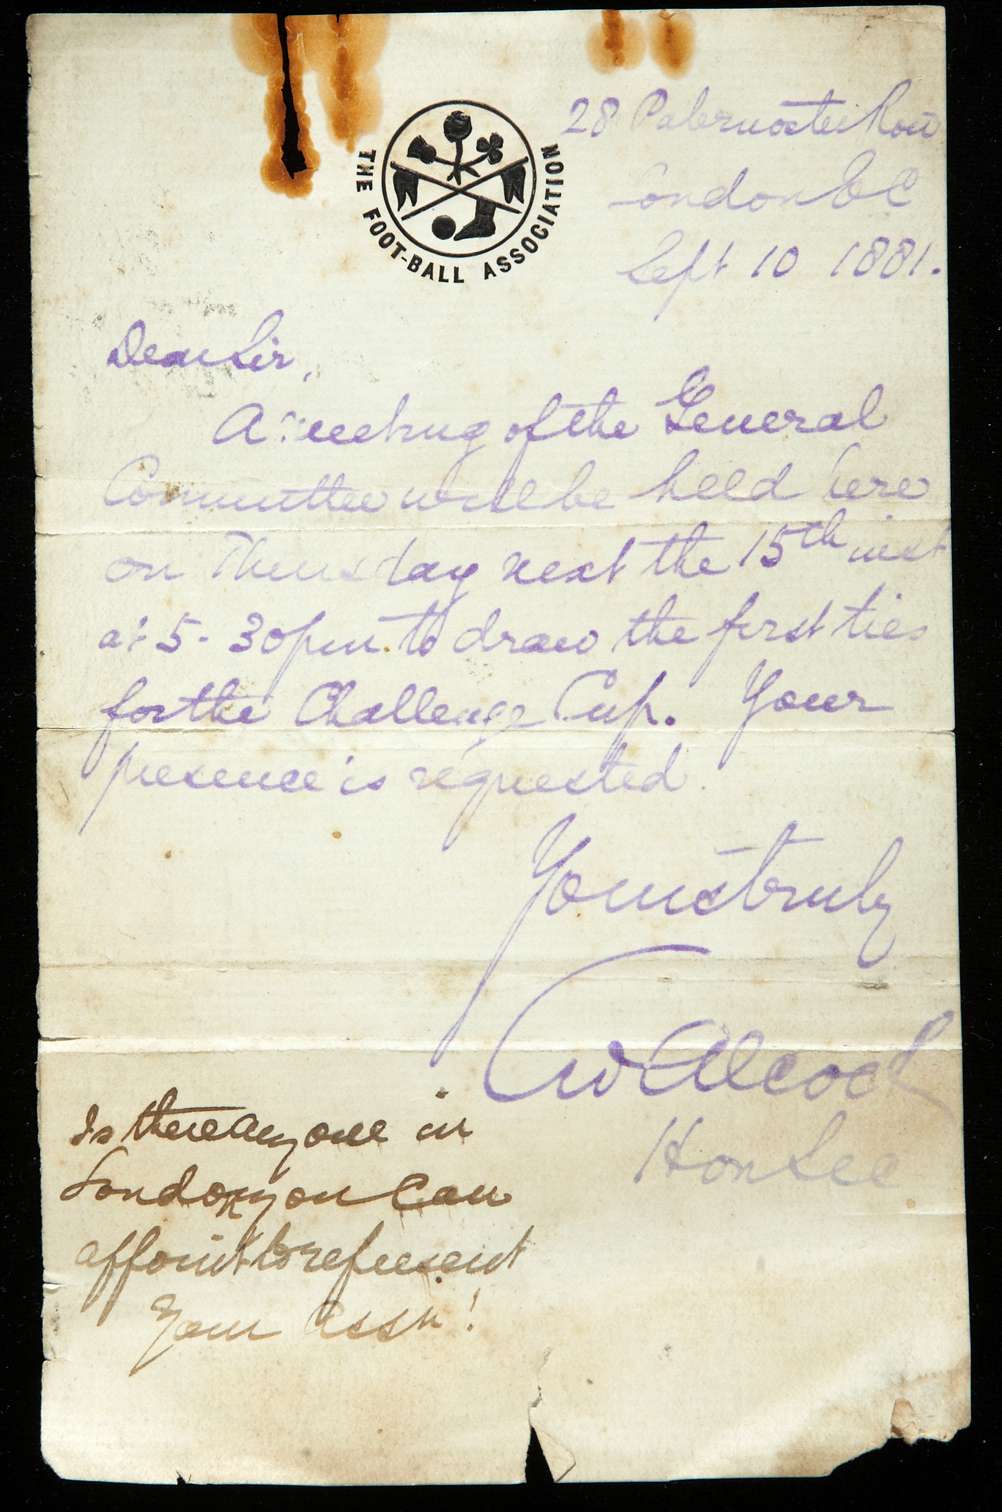 THE FOOT-BALL ASSOCIATION
28 Paternoster Row
London E C
Sept 10 1881.
Dear Sir,
A meeting of the General
Committee will be held here
on Thursday next the 15th inst
at 5-30 pm to draw the first ties
for the Challenge Cup. Your
presence is requested.
Yours truly
C W Alcock
Hon Sec
Is there any one in
London you can
appoint to represent
Your Assn!